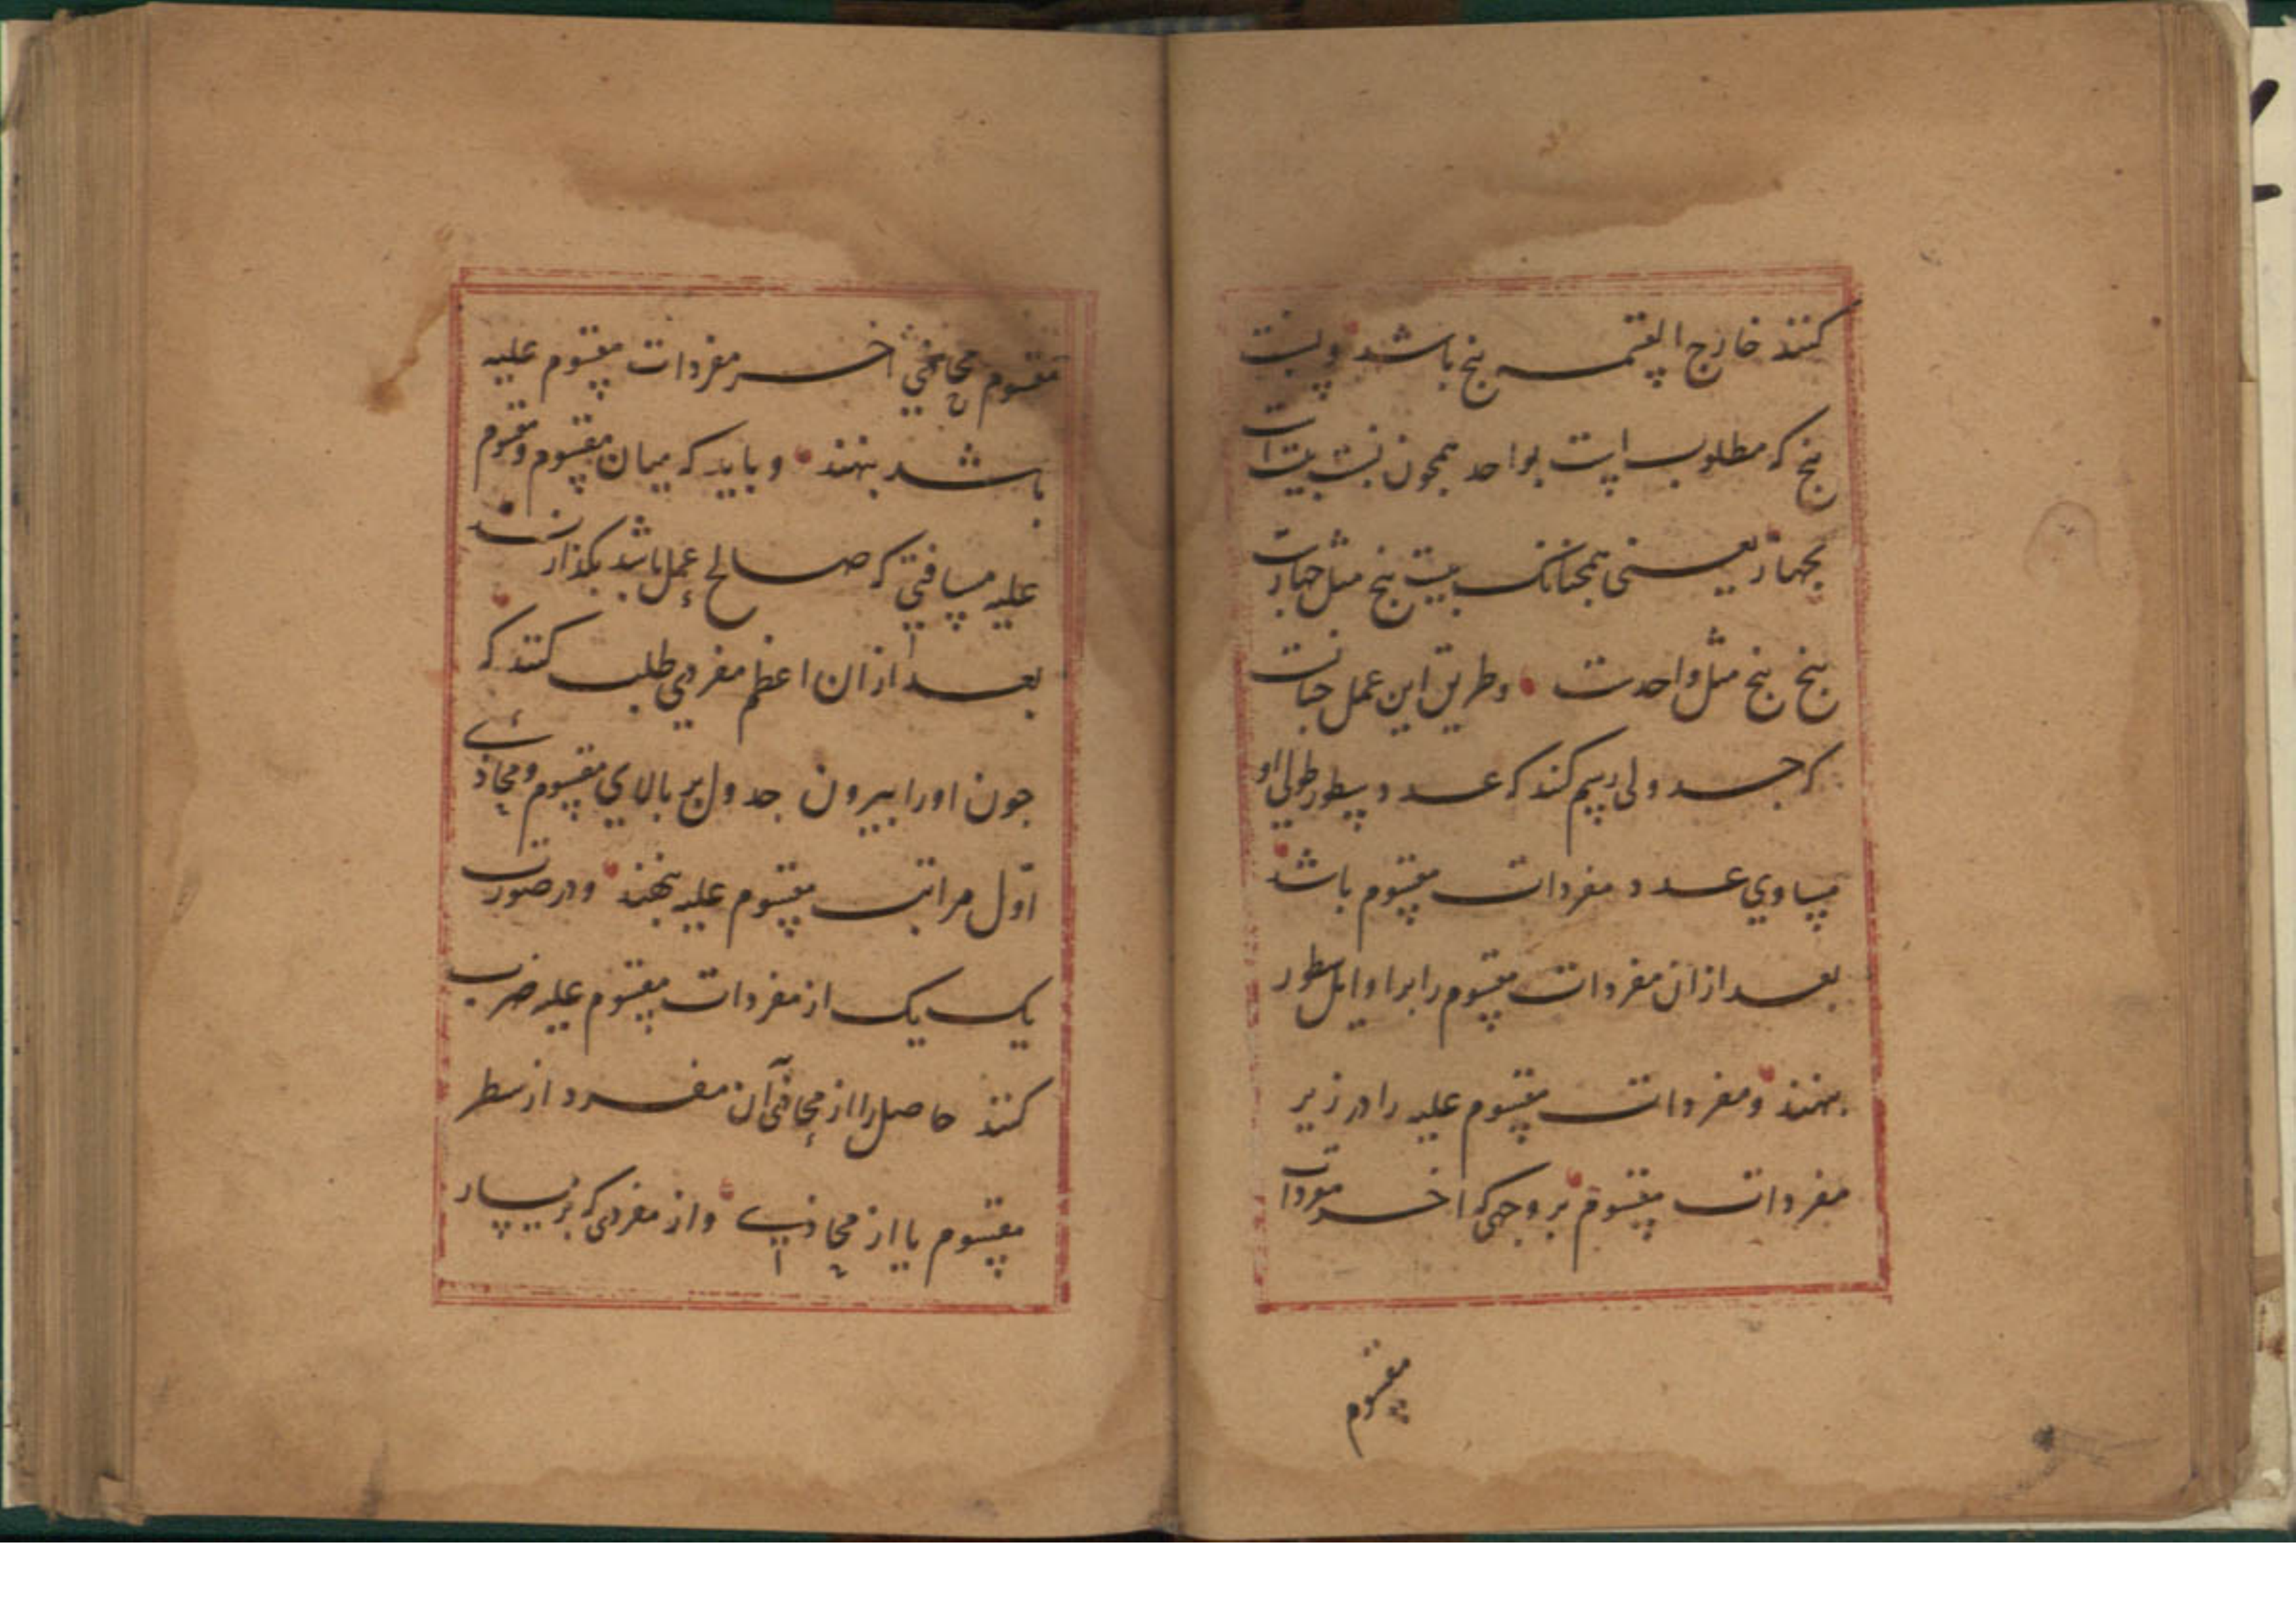 کنند خارج القسمه پنج باشد و نسبت
پنج که مطلوب است بواحد همچون نسبت بیست است
بچهار یعنی همچنانک بیست پنج مثل چهارست
پنج پنج مثل واحدست وطریق این عمل چنانست
که جدولی رسم کنند که عدد سطور طولی او
مساوی عدد مفردات مقسوم باشد
بعد از ان مفردات مقسوم را بر اوایل سطور
بنهند و مفردات مقسوم علیه را در زیر
مفردات مقسوم بر وجهی که اخر مفردات
مقسوم
مقسوم محاذی اخر مفردات مقسوم علیه
باشد بنهند و باید که میان مقسوم و مقسوم
علیه مسافتی که صالح عمل باشد بگذارند
بعد از ان اعظم مفردی طلب کنند که
جون اورا بیرون جدول بر بالای مقسوم و محاذی
اول مراتب مقسوم علیه بنهند و در صورت
یک یک از مفردات مقسوم علیه ضرب
کنند حاصل را از محاذی آن مفرد از سطر
مقسوم یا از محاذی و از مفردی که بر یسار